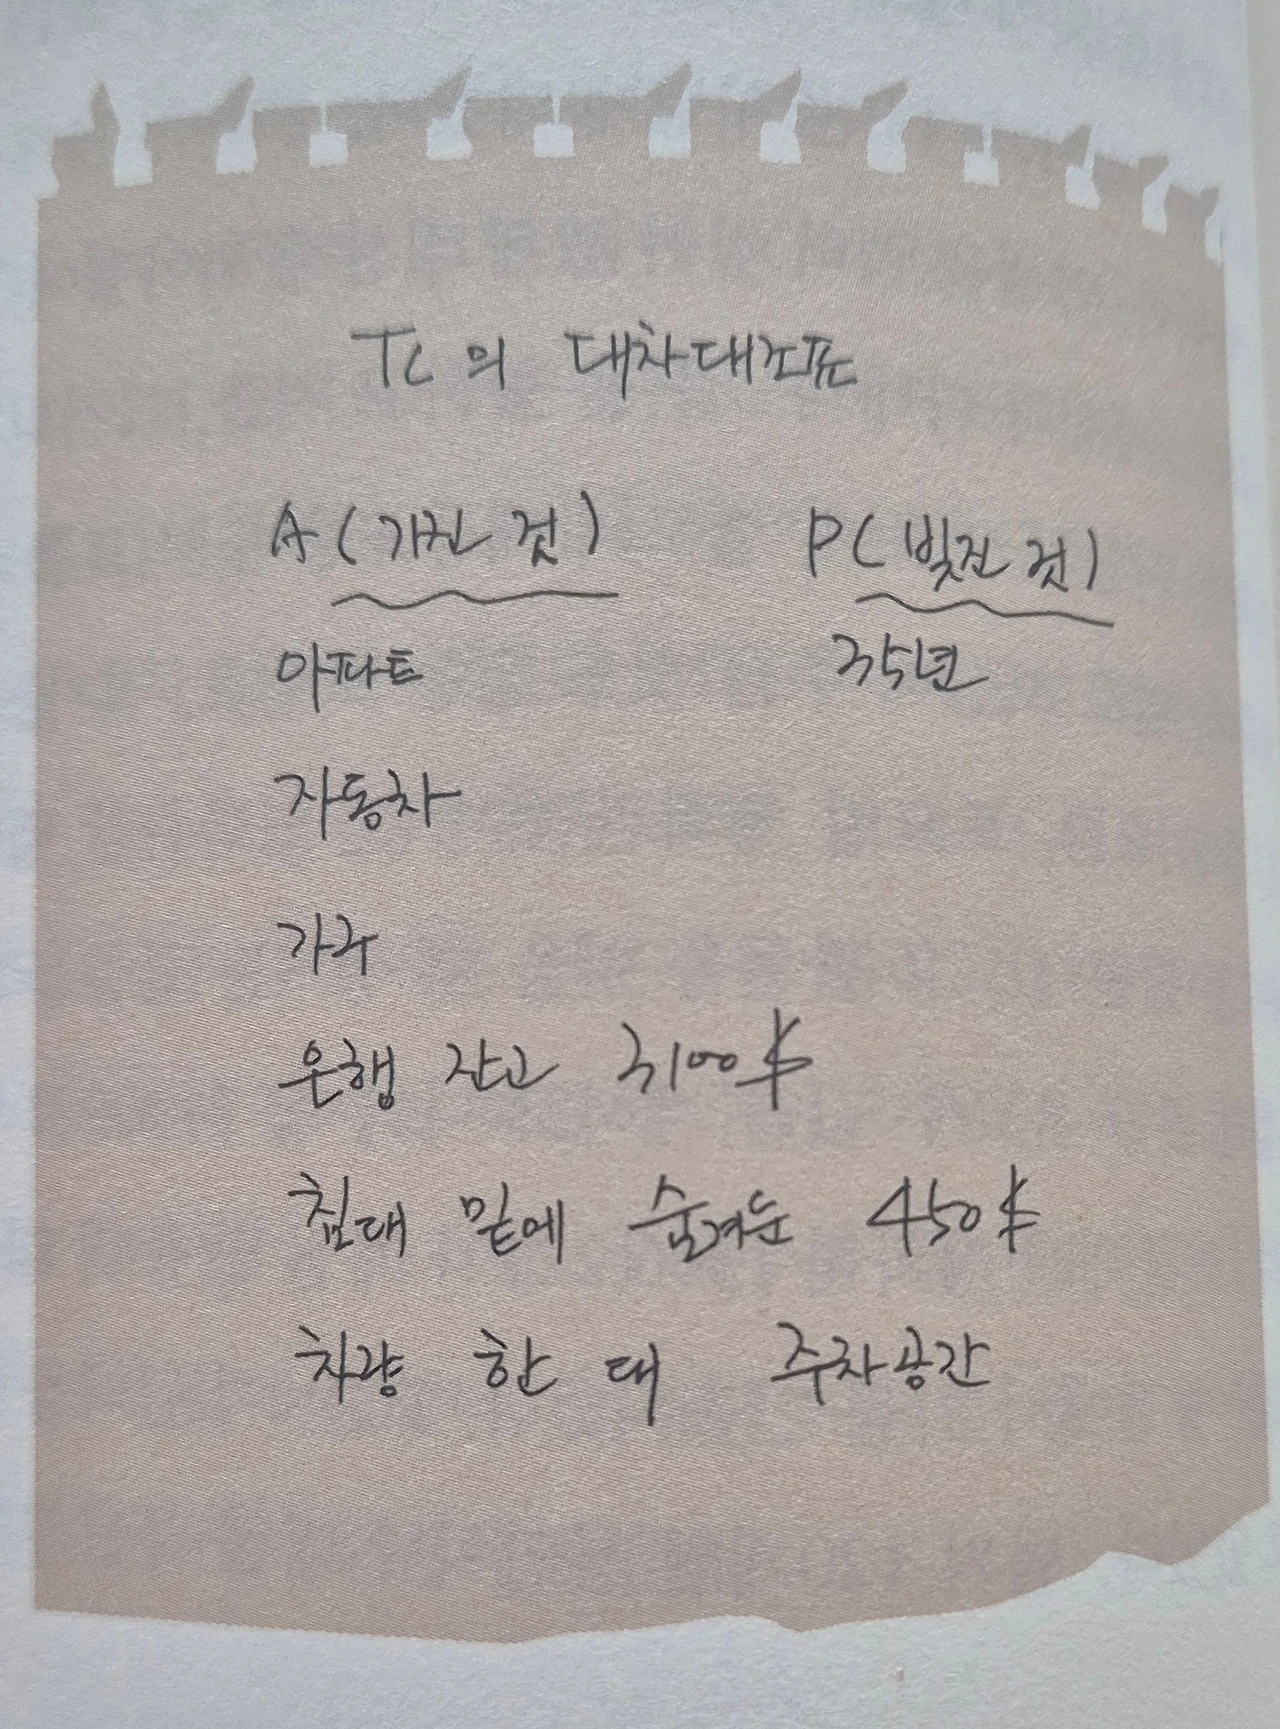 TC의 대차대조표
A (가진 것) P (빚진 것)
아파트 35년
자동차
가구
은행 잔고 3100$
침대 밑에 숨겨둔 450$
차량 한 대 주차공간